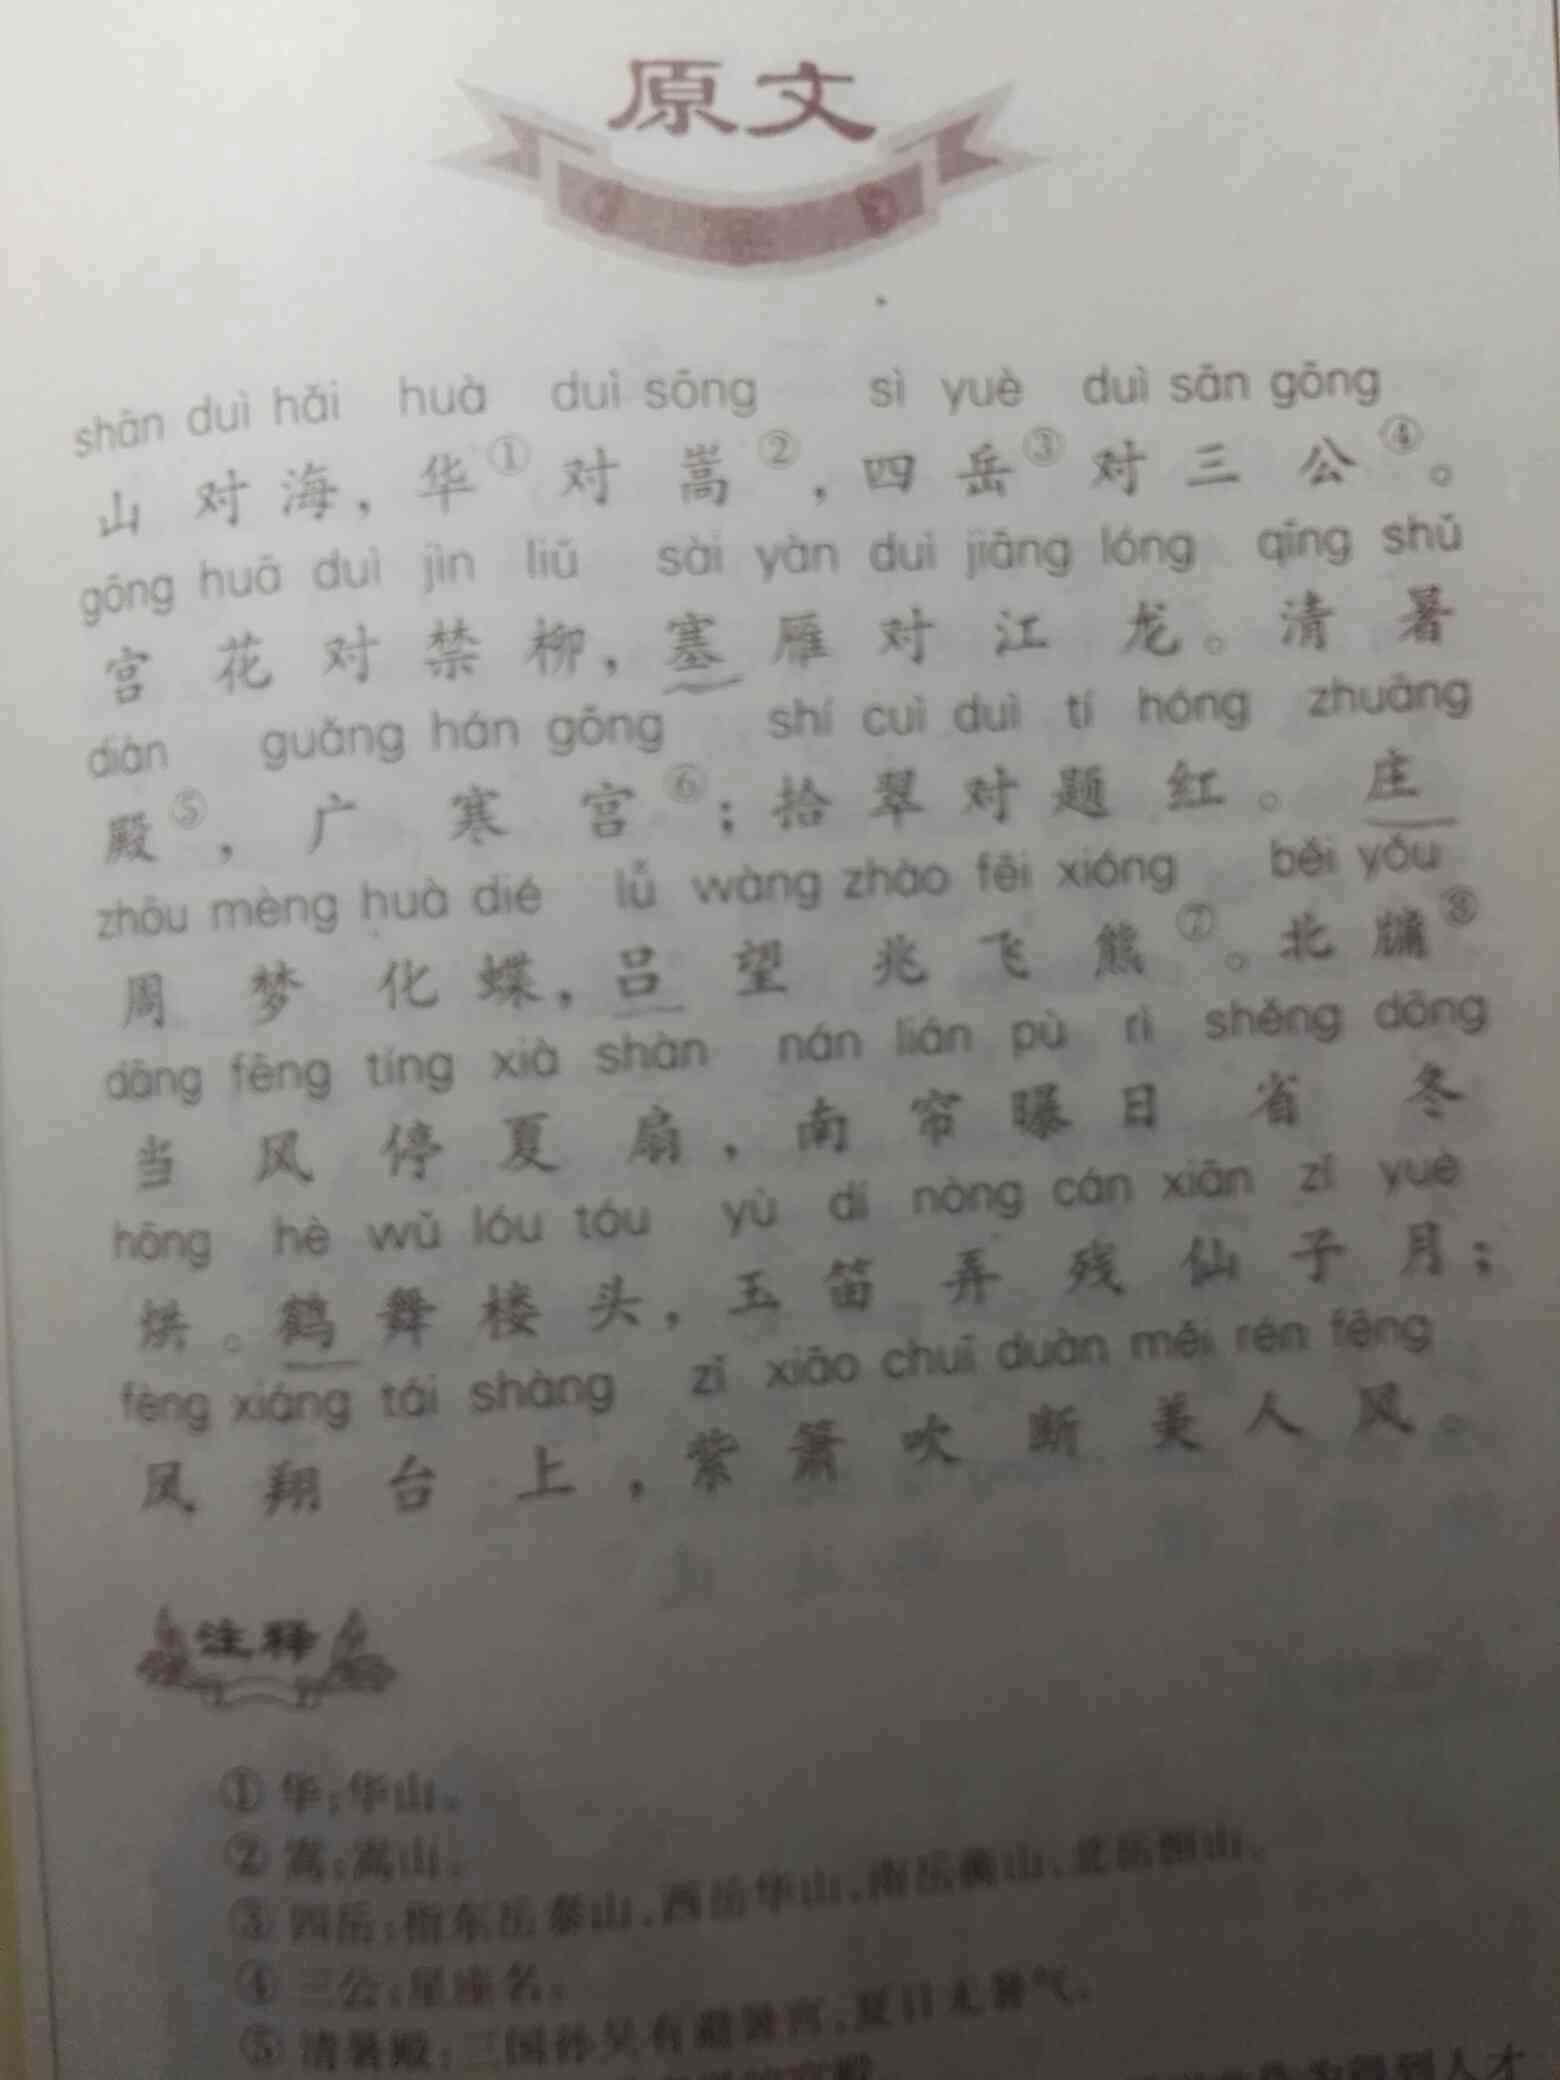 原文
shān duì hǎi huà duì sōng sì yuè duì sān gōng
山对海，华①对嵩②，四岳③对三公④。
gōng huā duì jìn liǔ sài yàn duì jiāng lóng qīng shǔ
宫花对禁柳，塞雁对江龙。清暑
diàn guǎng hán gōng shí cuì duì tí hóng zhuāng
殿⑤，广寒宫⑥；拾翠对题红。庄
zhōu mèng huà dié lǚ wàng zhào fēi xióng běi yǒu
周梦化蝶，吕望兆飞熊⑦。北牖⑧
dāng fēng tíng xià shàn nán lián pù rì shěng dōng
当风停夏扇，南帘曝日省冬
hōng hè wǔ lóu tóu yù dí nòng cán xiān zǐ yuè
烘。鹤舞楼头，玉笛弄残仙子月；
fèng xiáng tái shàng zǐ xiāo chuī duàn měi rén fēng
凤翔台上，紫箫吹断美人风。
注释
①华：华山。
②嵩：嵩山。
③四岳：指东岳泰山、西岳华山、南岳衡山、北岳恒山。
④三公：星座名。
⑤清暑殿：三国孙吴有避暑宫，夏日无暑气。
得到人才